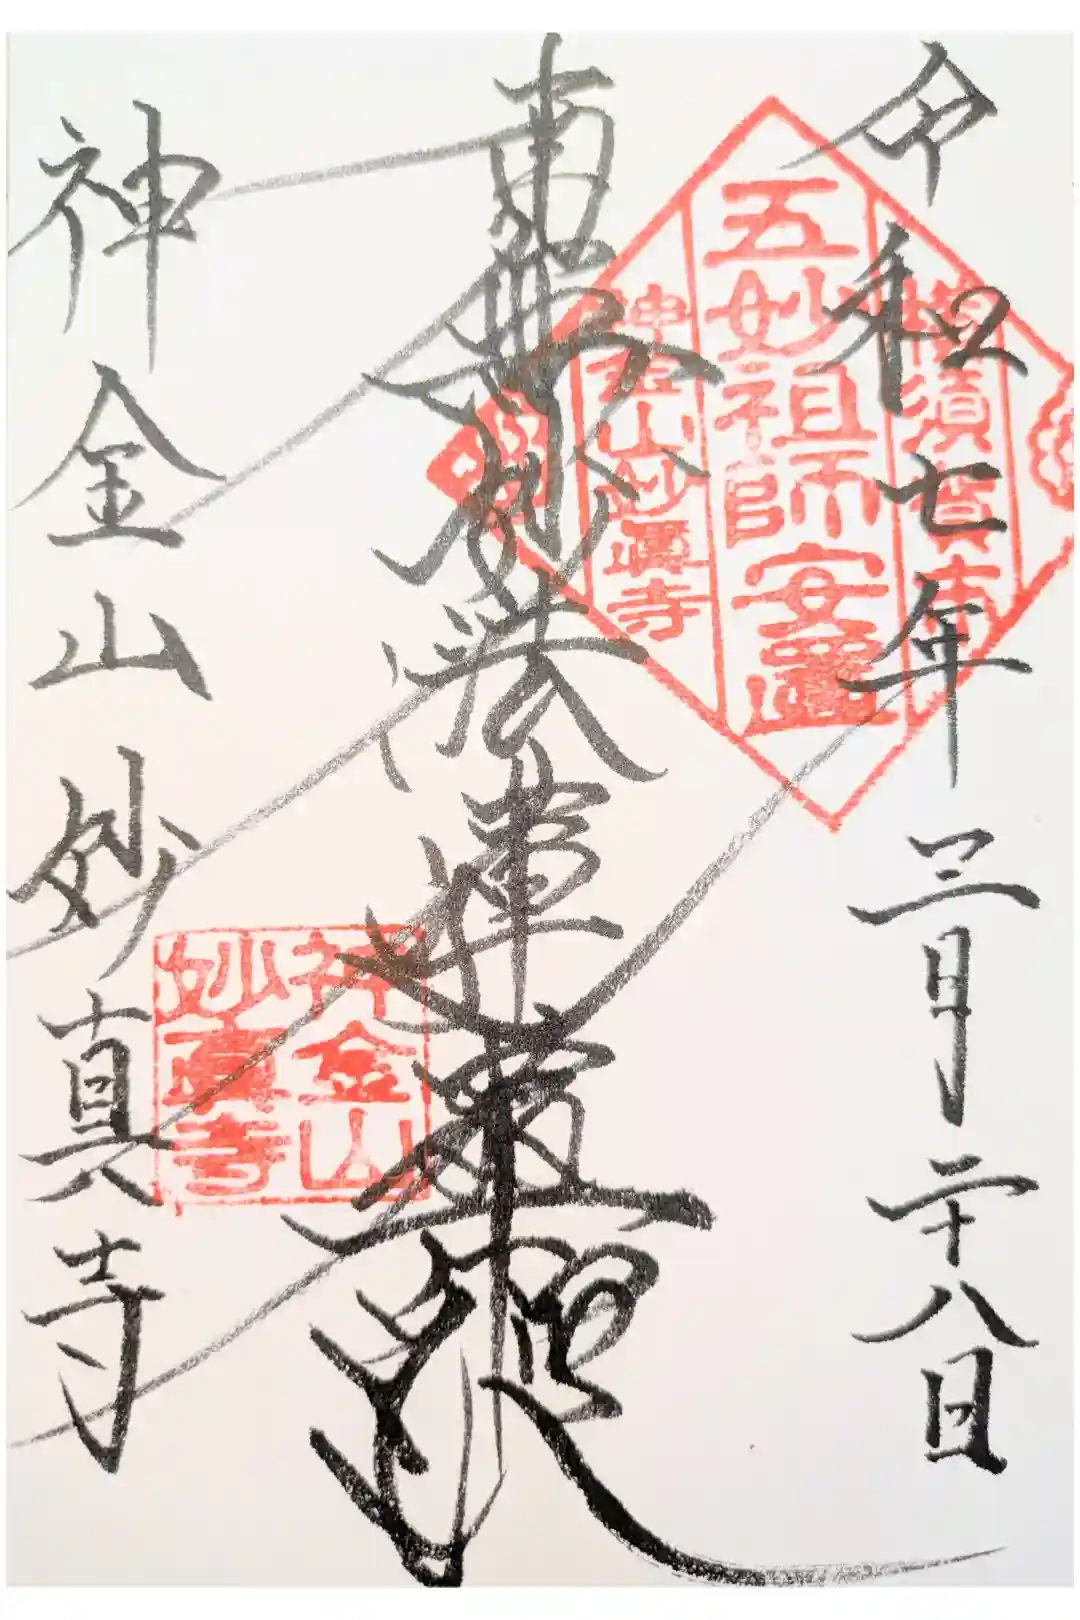 令和七年三月二十八日
横須賀
五妙祖師安
神金山妙眞寺
南無妙法蓮華経
神金山
妙眞寺
神金山妙真寺